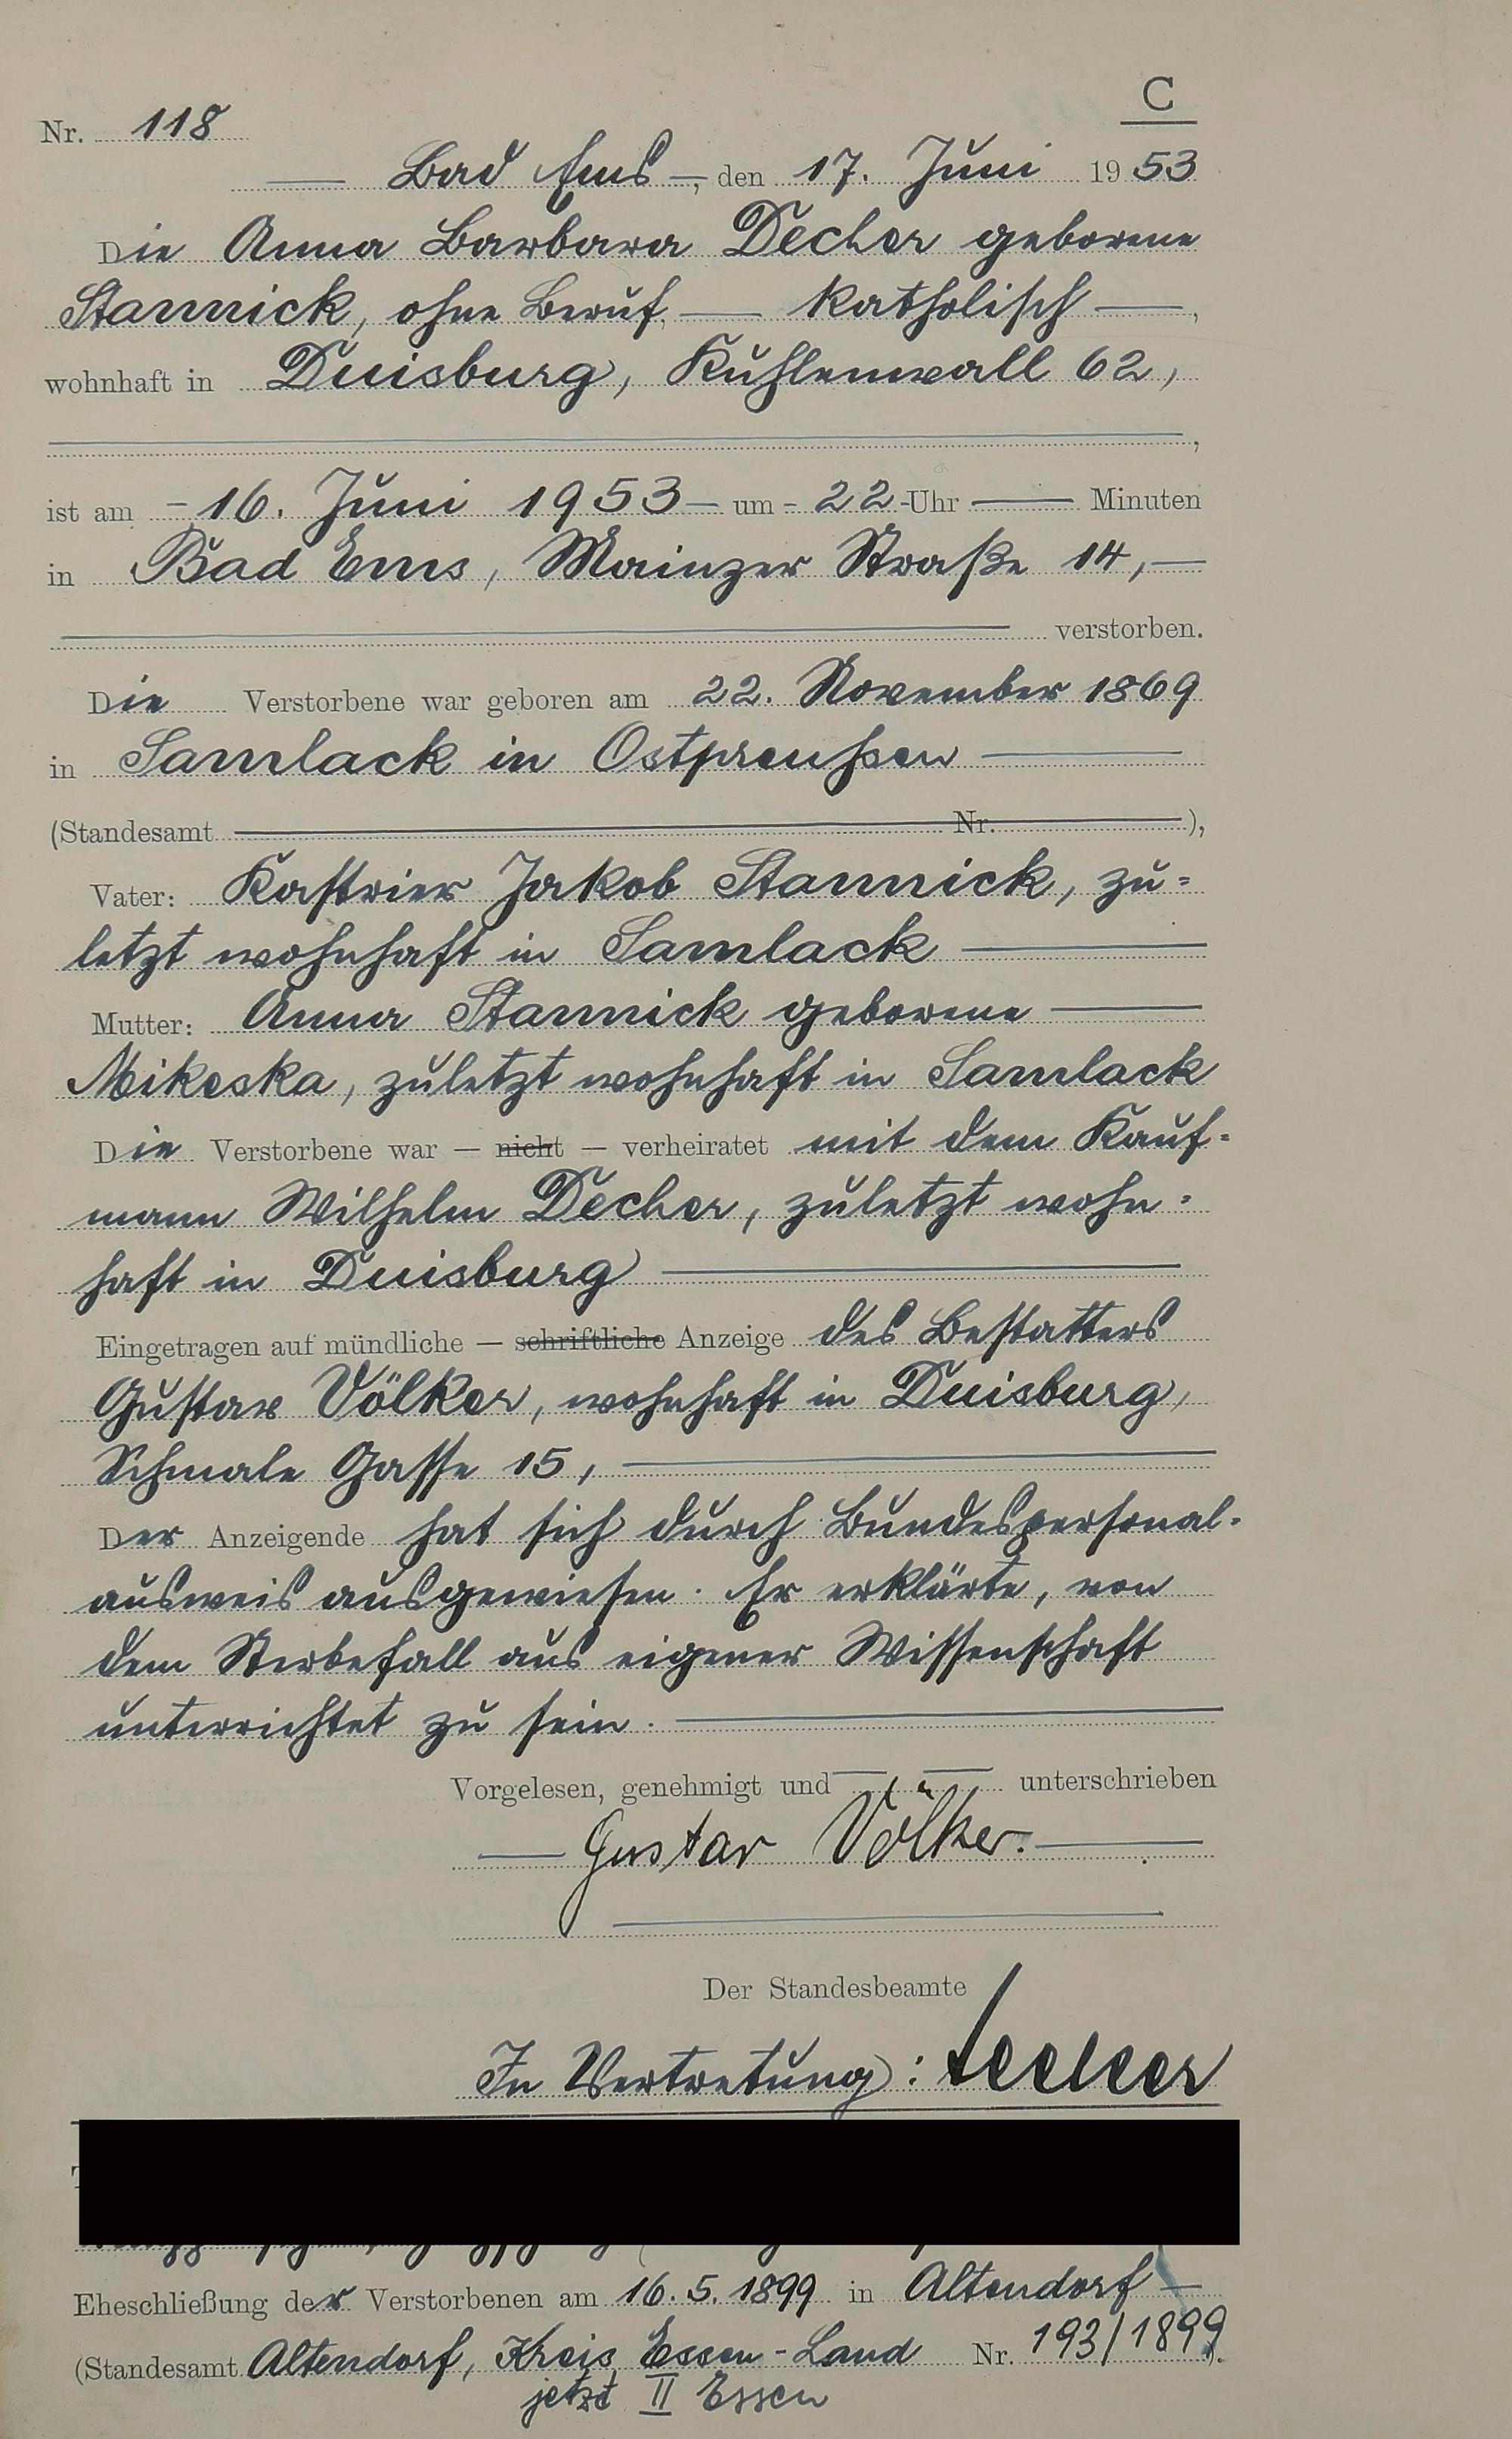 C
Nr. 118
Bad Ems, den 17. Juni 1953
Die Anna Barbara Decher geborene
Stannick, ohne Beruf, — katholisch —,
wohnhaft in Duisburg, Kuhlenwall 62,
,
ist am - 16. Juni 1953 — um - 22 - Uhr — Minuten
in Bad Ems, Mainzer Straße 14, —
verstorben.
Die Verstorbene war geboren am 22. November 1869
in Samlack in Ostpreußen —
(Standesamt — Nr. —),
Vater: Kastrier Jakob Stannick, zu=
letzt wohnhaft in Samlack —
Mutter: Anna Stannick geborene —
Mikeska, zuletzt wohnhaft in Samlack
Die Verstorbene war — nicht — verheiratet mit dem Kauf=
mann Wilhelm Decher, zuletzt wohn=
haft in Duisburg —
Eingetragen auf mündliche — schriftliche Anzeige des Bestatters
Gustav Völker, wohnhaft in Duisburg,
Schmale Gasse 15, —
Der Anzeigende hat sich durch Bundespersonal=
ausweis ausgewiesen. Er erklärte, von
dem Sterbefall aus eigener Wissenschaft
unterrichtet zu sein. —
Vorgelesen, genehmigt und — — unterschrieben
— Gustav Völker. —
Der Standesbeamte
In Vertretung:
Eheschließung der Verstorbenen am 16.5.1899 in Altendorf —
(Standesamt Altendorf, Kreis Essen-Land Nr. 193/1899).
jetzt II Essen